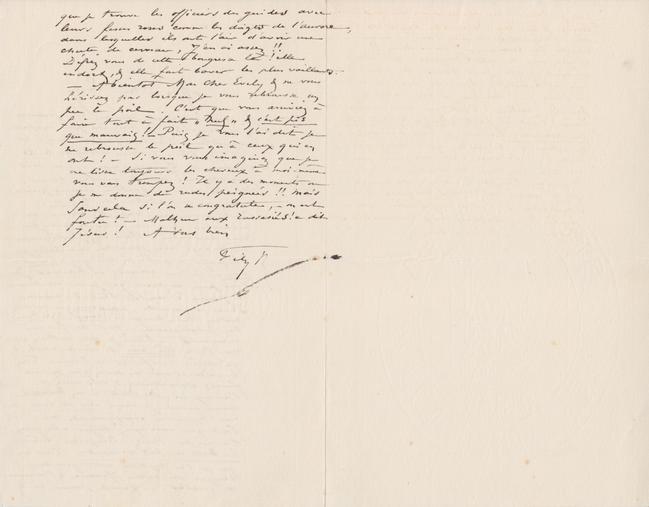 que je trouve les officiers des guides avec
leurs fesses roses comme les doigts de l'aurore,
dans lesquelles ils ont l'air d'avoir une
chute de cerveau, j'en ai assez !!
Défiez vous de cette bougresse là ! elle
endort, & elle fait baver les plus vaillants.
— A bientôt Mon cher Evely & ne vous
hérissez pas lorsque je vous rebrousse un
peu le poil. C'est que vous arriviez à
faire tout à fait & c'est pis
que mauvais ! — Puis je vous l'ai dit je
ne retrousse le poil qu'à ceux qui en
ont ! — Si vous vous imaginez que je
ne lisse toujours les cheveux à moi-même
vous vous trompez ! Il y a des moments où
je me donne de rudes peignées !! Mais
sans cela si l'on se congratule, — on est
foutu ! — Malheur aux rassasiés ! a dit
Jésus ! A vous bien